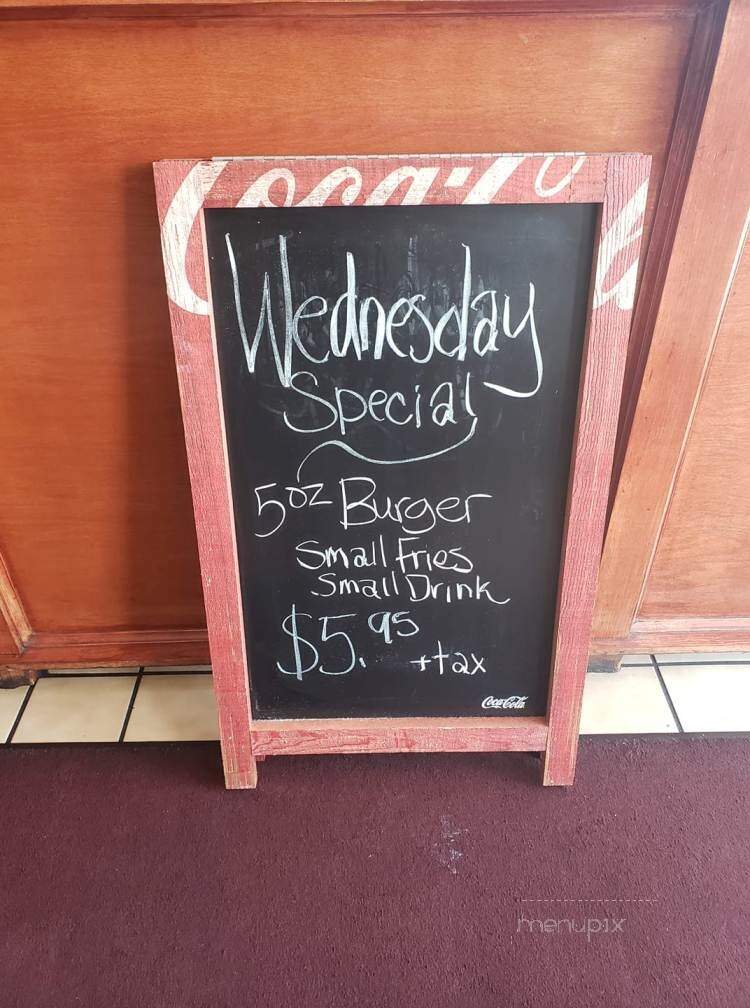 Coca-Cola
Wednesday
Special
5oz Burger
Small Fries
Small Drink
$5.95
+tax
Coca-Cola
menupix